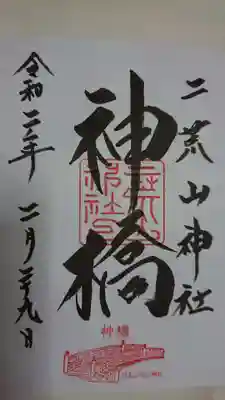 二荒山神社
神橋
令和二年 二月二十九日
神橋